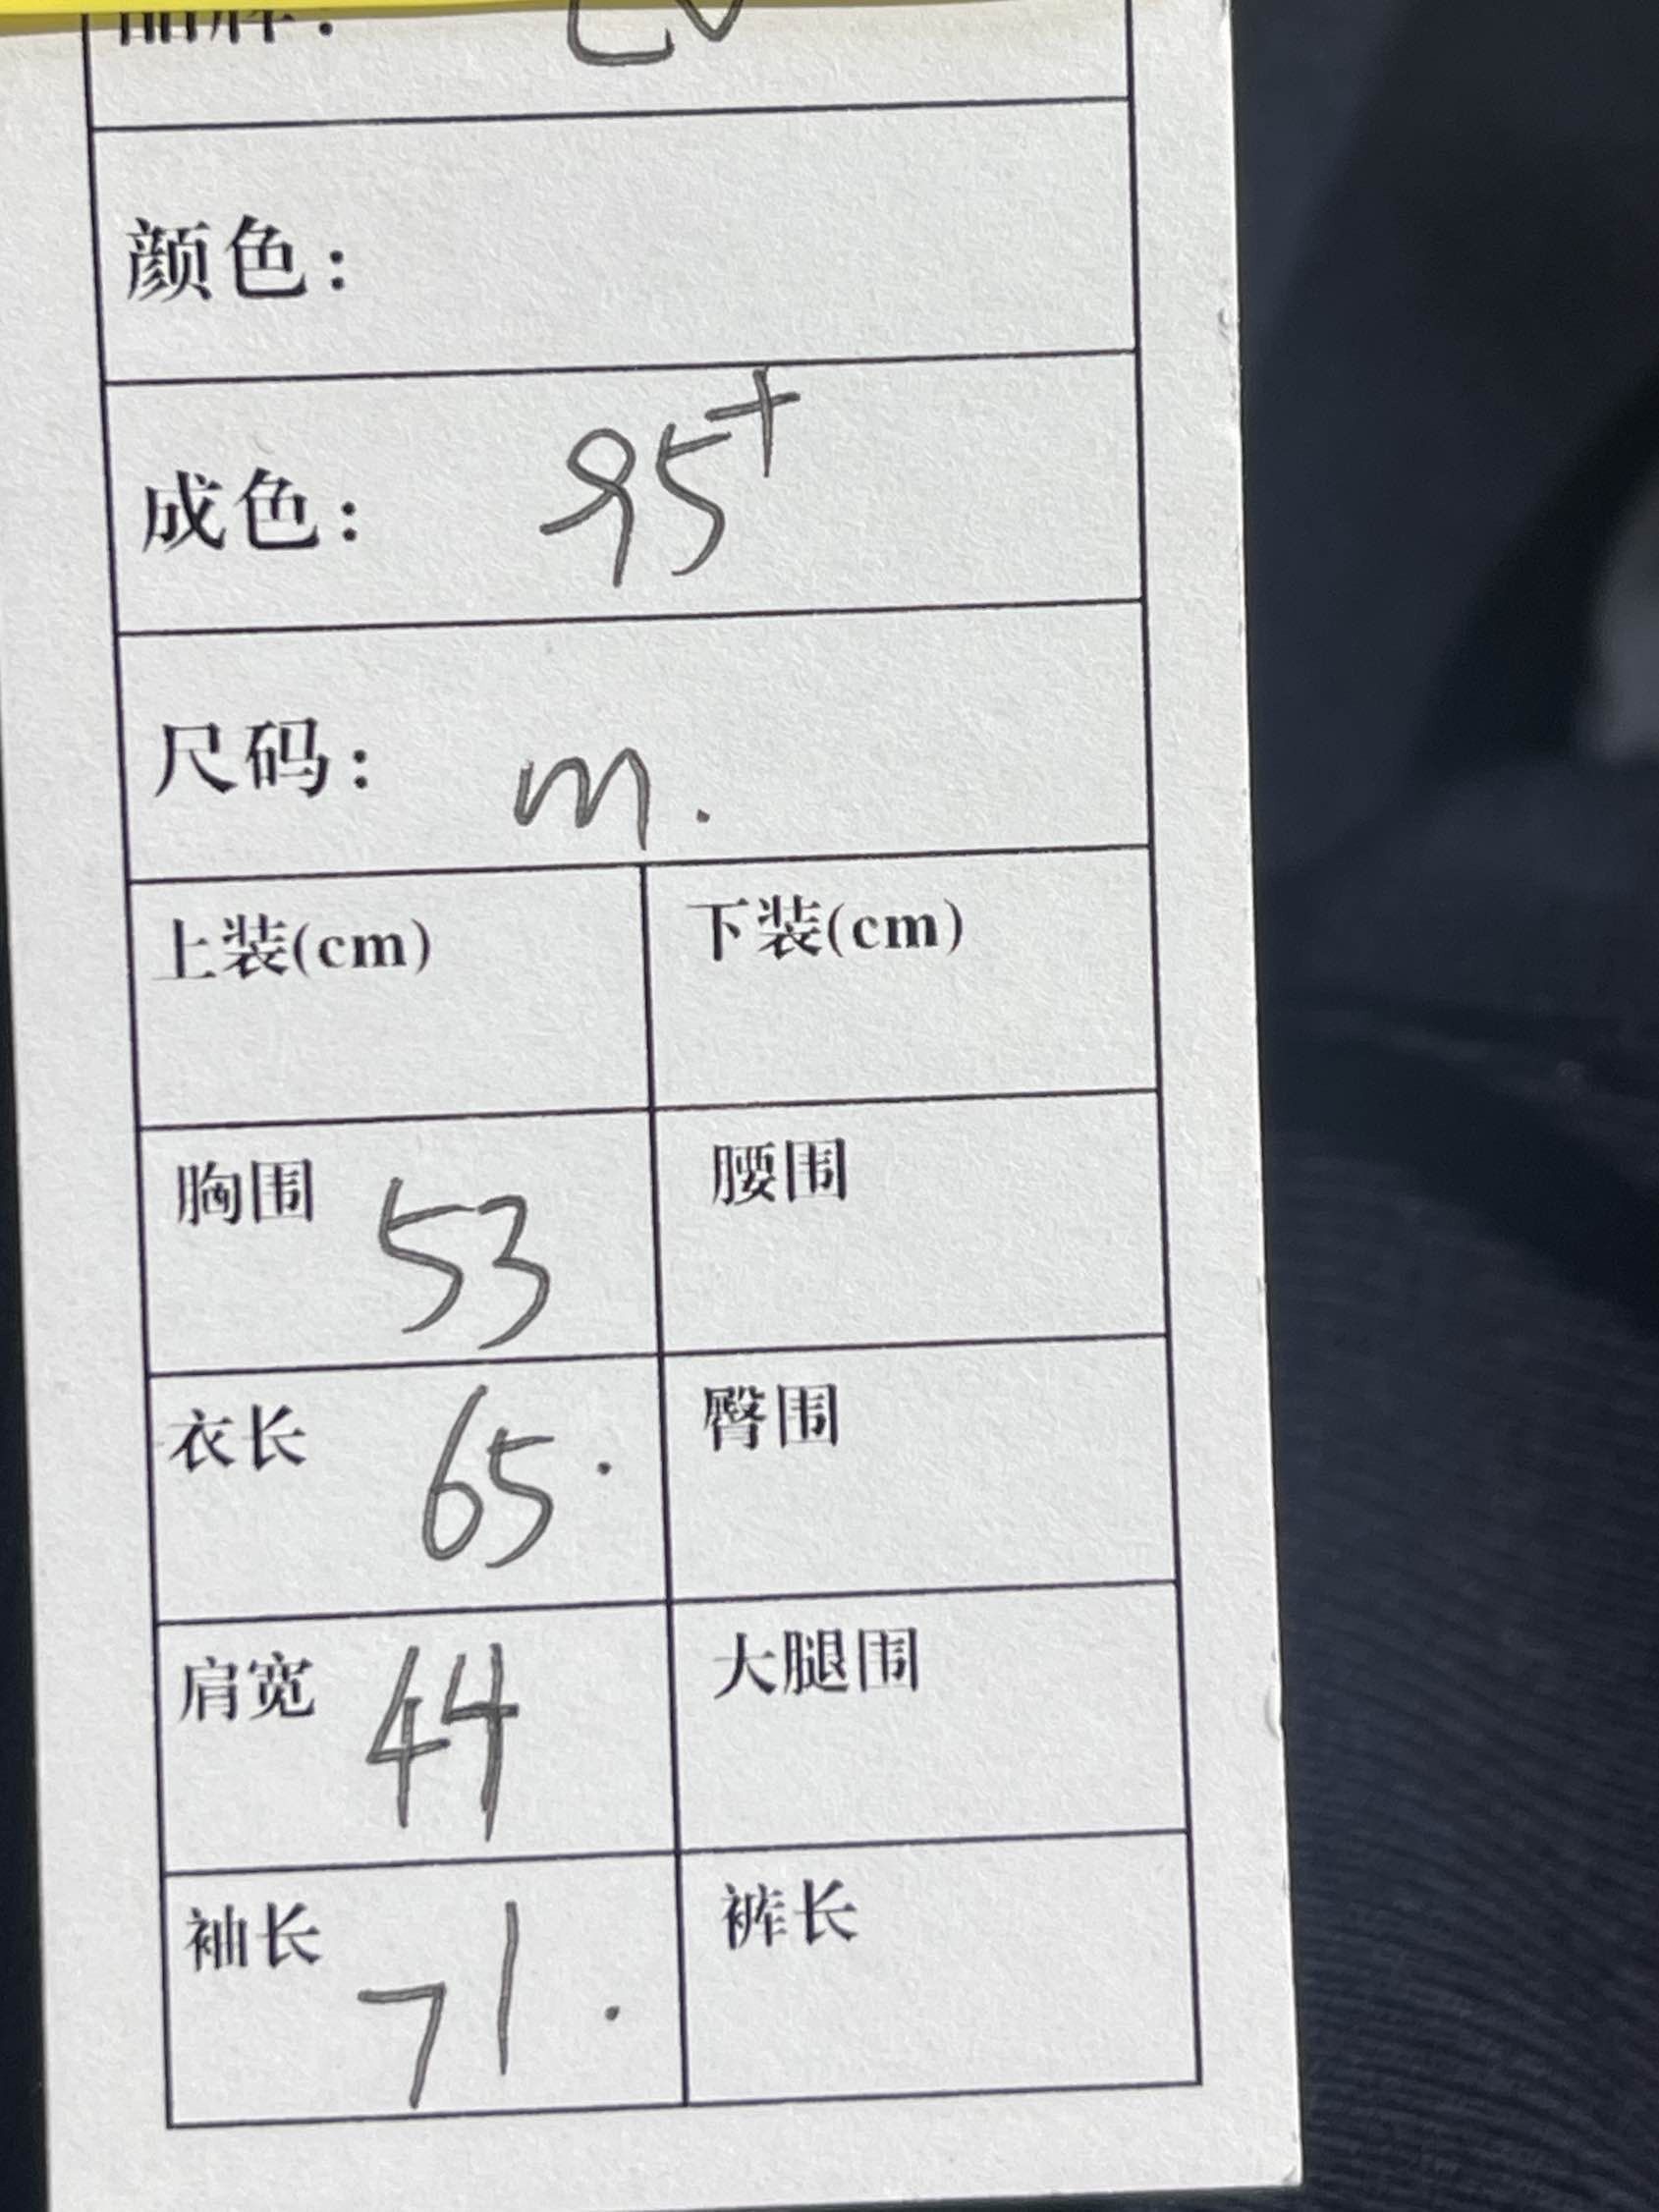 品牌： LV
颜色：
成色： 95+
尺码： m.
上装(cm) 下装(cm)
胸围 53 腰围
衣长 65. 臀围
肩宽 44 大腿围
袖长 71. 裤长